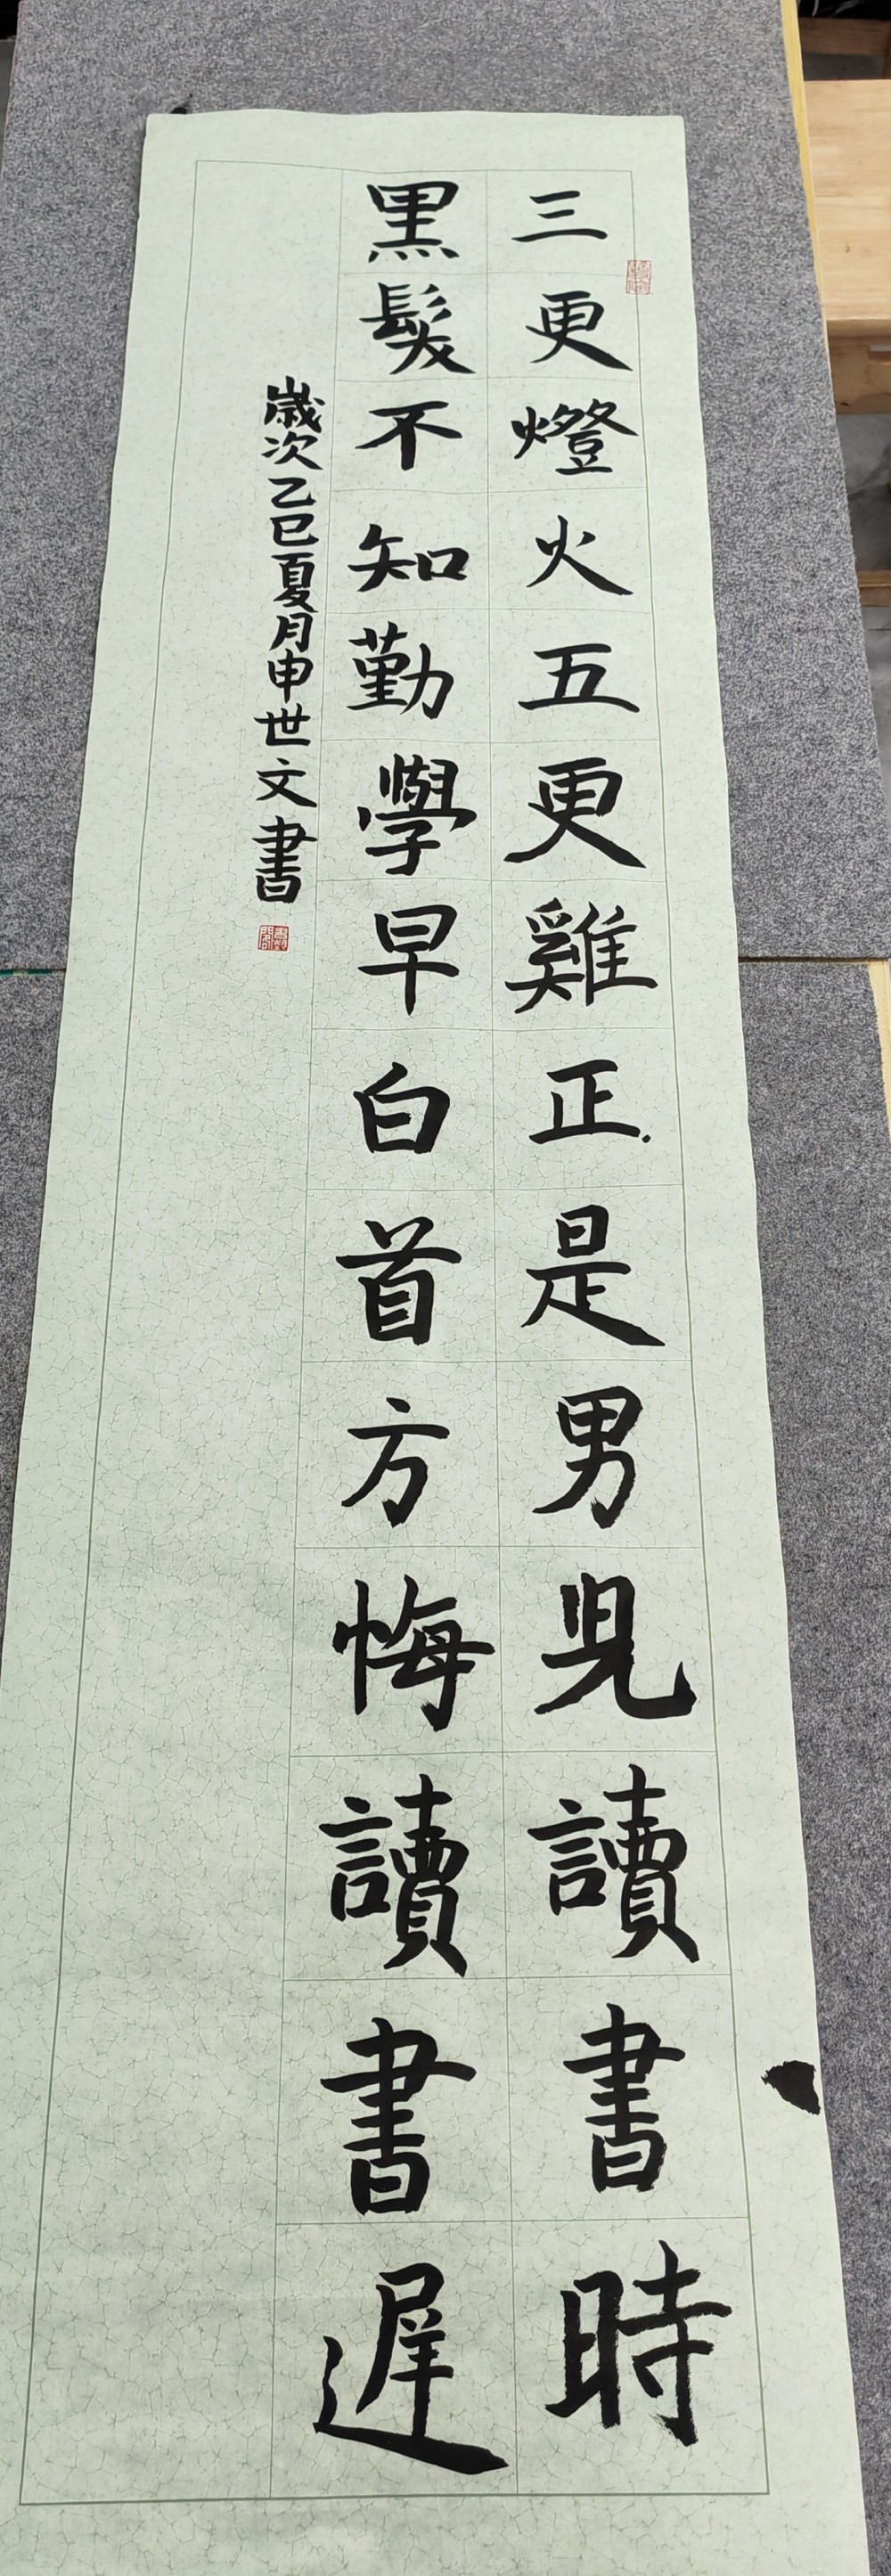 三更燈火五更雞正是男兒讀書時
黑髮不知勤學早白首方悔讀書遲
歲次乙巳夏月申世文書